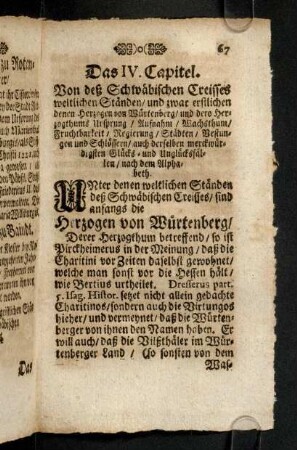 zu Roten-
67
Das IV. Capitel.
Von deß Schwäbischen Creisses
weltlichen Ständen/ und zwar erstlichen
denen Herzogen von Würtenberg/ und dero Her-
zogthums Ursprung / Aufnahm / Wachsthum/
Fruchtbarkeit / Regierung / Städten / Vestun-
gen und Schlössern/ auch derselben merckwür-
digsten Glücks- und Unglücksfäl-
len / nach dem Alpha-
beth.
UNter denen weltlichen Ständen
deß Schwäbischen Creisses/ sind
anfangs die
Herzogen von Würtenberg/
Derer Herzogthum betreffend/ so ist
Pirckheimerus in der Meinung / daß die
Charitini vor Zeiten daselbst gewohnet/
welche man sonst vor die Hessen hält/
wie Bertius urtheilet. Dresserus part.
5. Isag. Histor. setzet nicht allein gedachte
Charitinos/sondern auch die Virtungos
hieher/ und vermeynet/ daß die Würten-
berger von ihnen den Namen haben. Er
will auch/ daß die Vilßthäler im Wür-
tenberger Land / (so sonsten von dem
Was-
Das